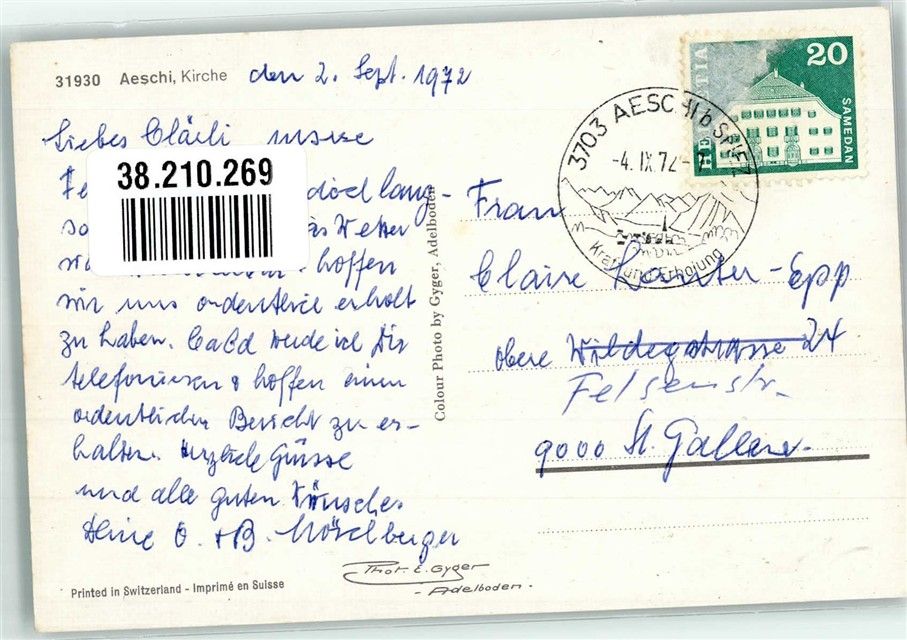 31930 Aeschi, Kirche den 2. Sept. 1972
Liebes Clärli unsere
38.210.269
Fe doch lang-
sa das Wetter
hoffen
wir uns ordentlich erholt
zu haben. Bald werde ich Dir
telefonieren & hoffen einen
ordentlichen Bericht zu er-
halten. Herzliche Grüsse
und alle guten Wünsche
Deine O. + B. Möschberger
Printed in Switzerland - Imprimé en Suisse
Colour Photo by Gyger, Adelboden
Phot. E. Gyger
- Adelboden -
HELVETIA
20
SAMEDAN
3703 AESCHI b SPIEZ
-4. IX 72 - 7
Kraft und Erholung
Frau
Claire -Epp
obere Wildeggstrasse 24
Felsenstr.
9000 St. Gallen